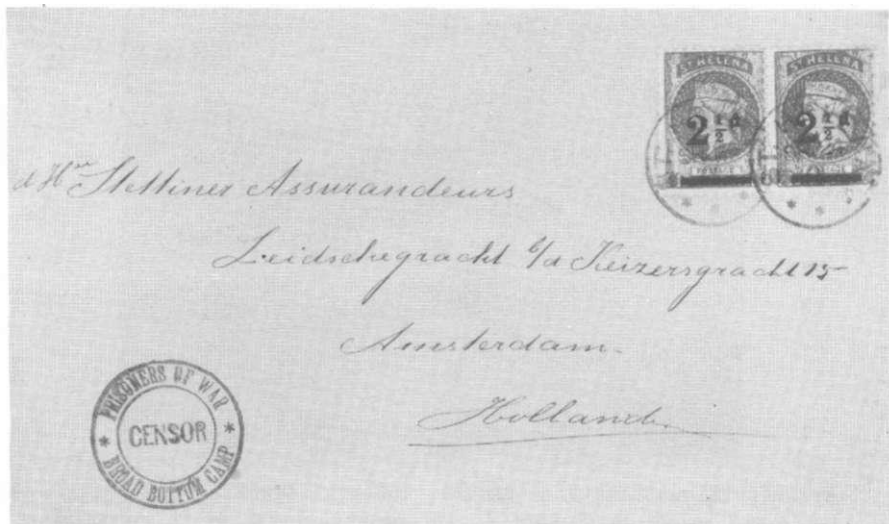 ST HELENA ST HELENA
2½d 2½d
d Hrn Stettiner Assurandeurs
Leidschegracht h/d Keizersgracht 15
Amsterdam.
Holland.
PRISONERS OF WAR
CENSOR
* BROAD BOTTOM CAMP *